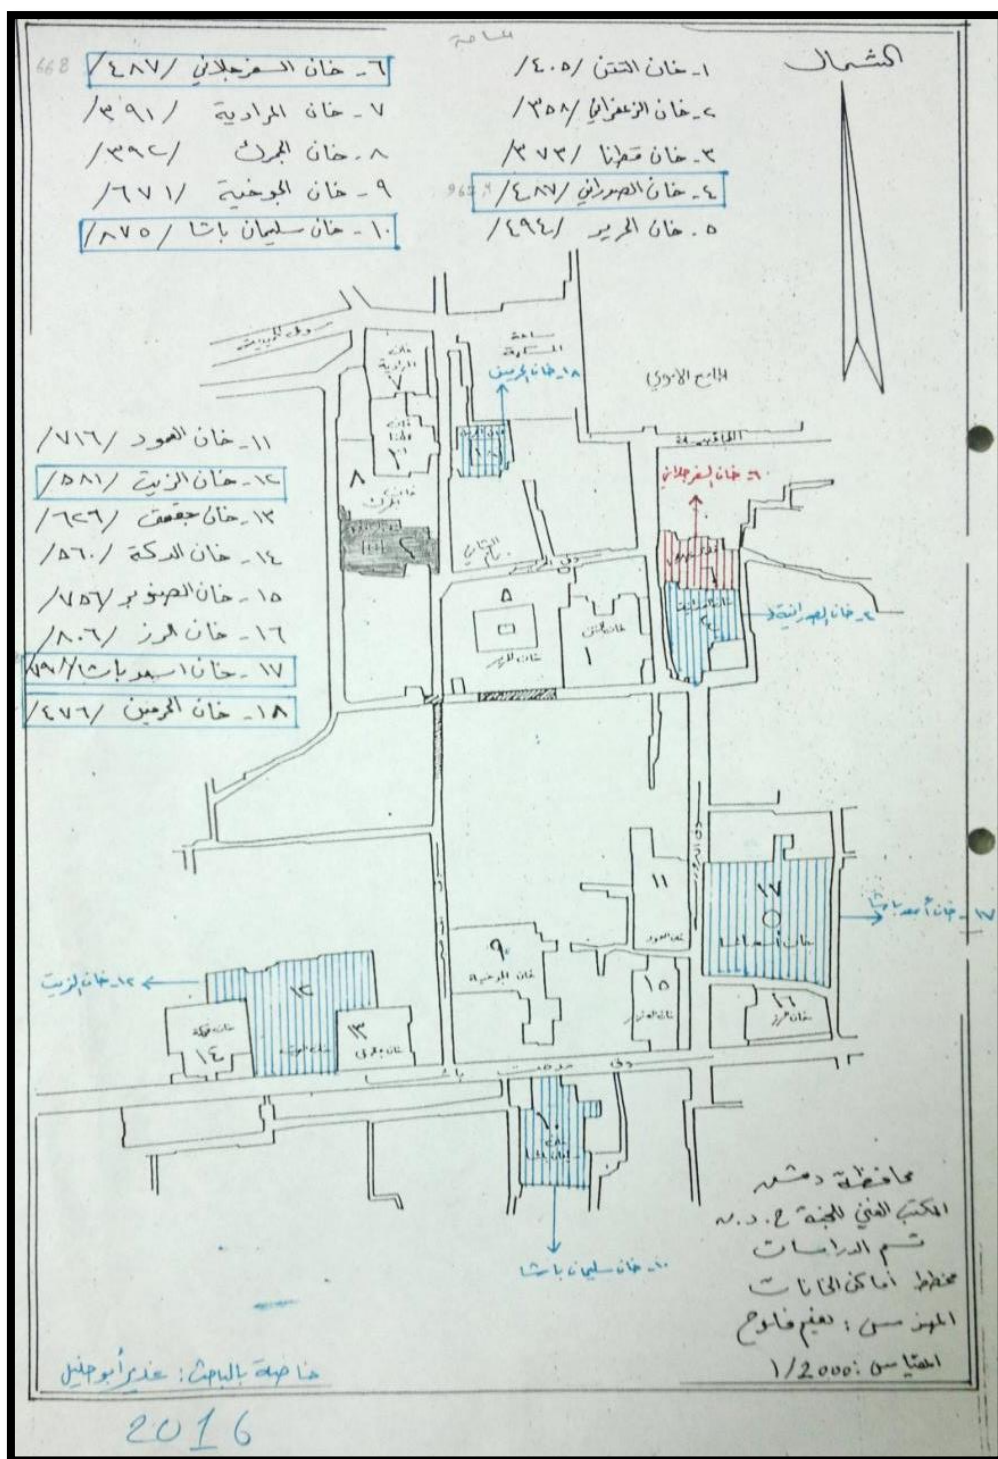 المساحة
الشمال
١- خان التتن /٤٠٥/
٢- خان الزعفراني /٣٥٨/
٣- خان قطنا /٣٧٣/
٤- خان الصوراني /٤٨٧/
٥- خان الحرير /٤٩٤/
٦- خان السفرجلاني /٤٨٧/
668
٧- خان المرادية /٣٩١/
٨- خان الجمرك /٣٩٢/
٩- خان الجوخية /٦٧١/
١٠- خان سليمان باشا /٨٧٥/
١١- خان العمود /٧١٦/
١٢- خان الزيت /٥٨١/
١٣- خان جقمق /٦٢٦/
١٤- خان الدكة /٥٦٠/
١٥- خان الصنوبر /٧٥٦/
١٦- خان الرز /٨٠٦/
١٧- خان اسعد باشا
١٨- خان الحرمين /٤٧٦/
ساحة
المسكية
١٨- خان الحرمين
الجامع الأموي
خان
المرادية
٧
٨
٦- خان السفرجلاني
٤- خان الصورانية
٥
١
١١
١٧
١٧- خان أسعد باشا
٩
خان الجوخية
١٥
١٦
خان الرز
١٢- خان الزيت
١٢
١٣
١٤
مدحت باشا
١٠
١٠- خان سليمان باشا
محافظة دمشق
المكتب الفني للجنة ح.د.ق
قسم الدراسات
مخطط أماكن الخانات
المهندس: نعيم فلوح
المقياس: 1/2000
خاصة بالباحث: غدير أبو خليل
2016